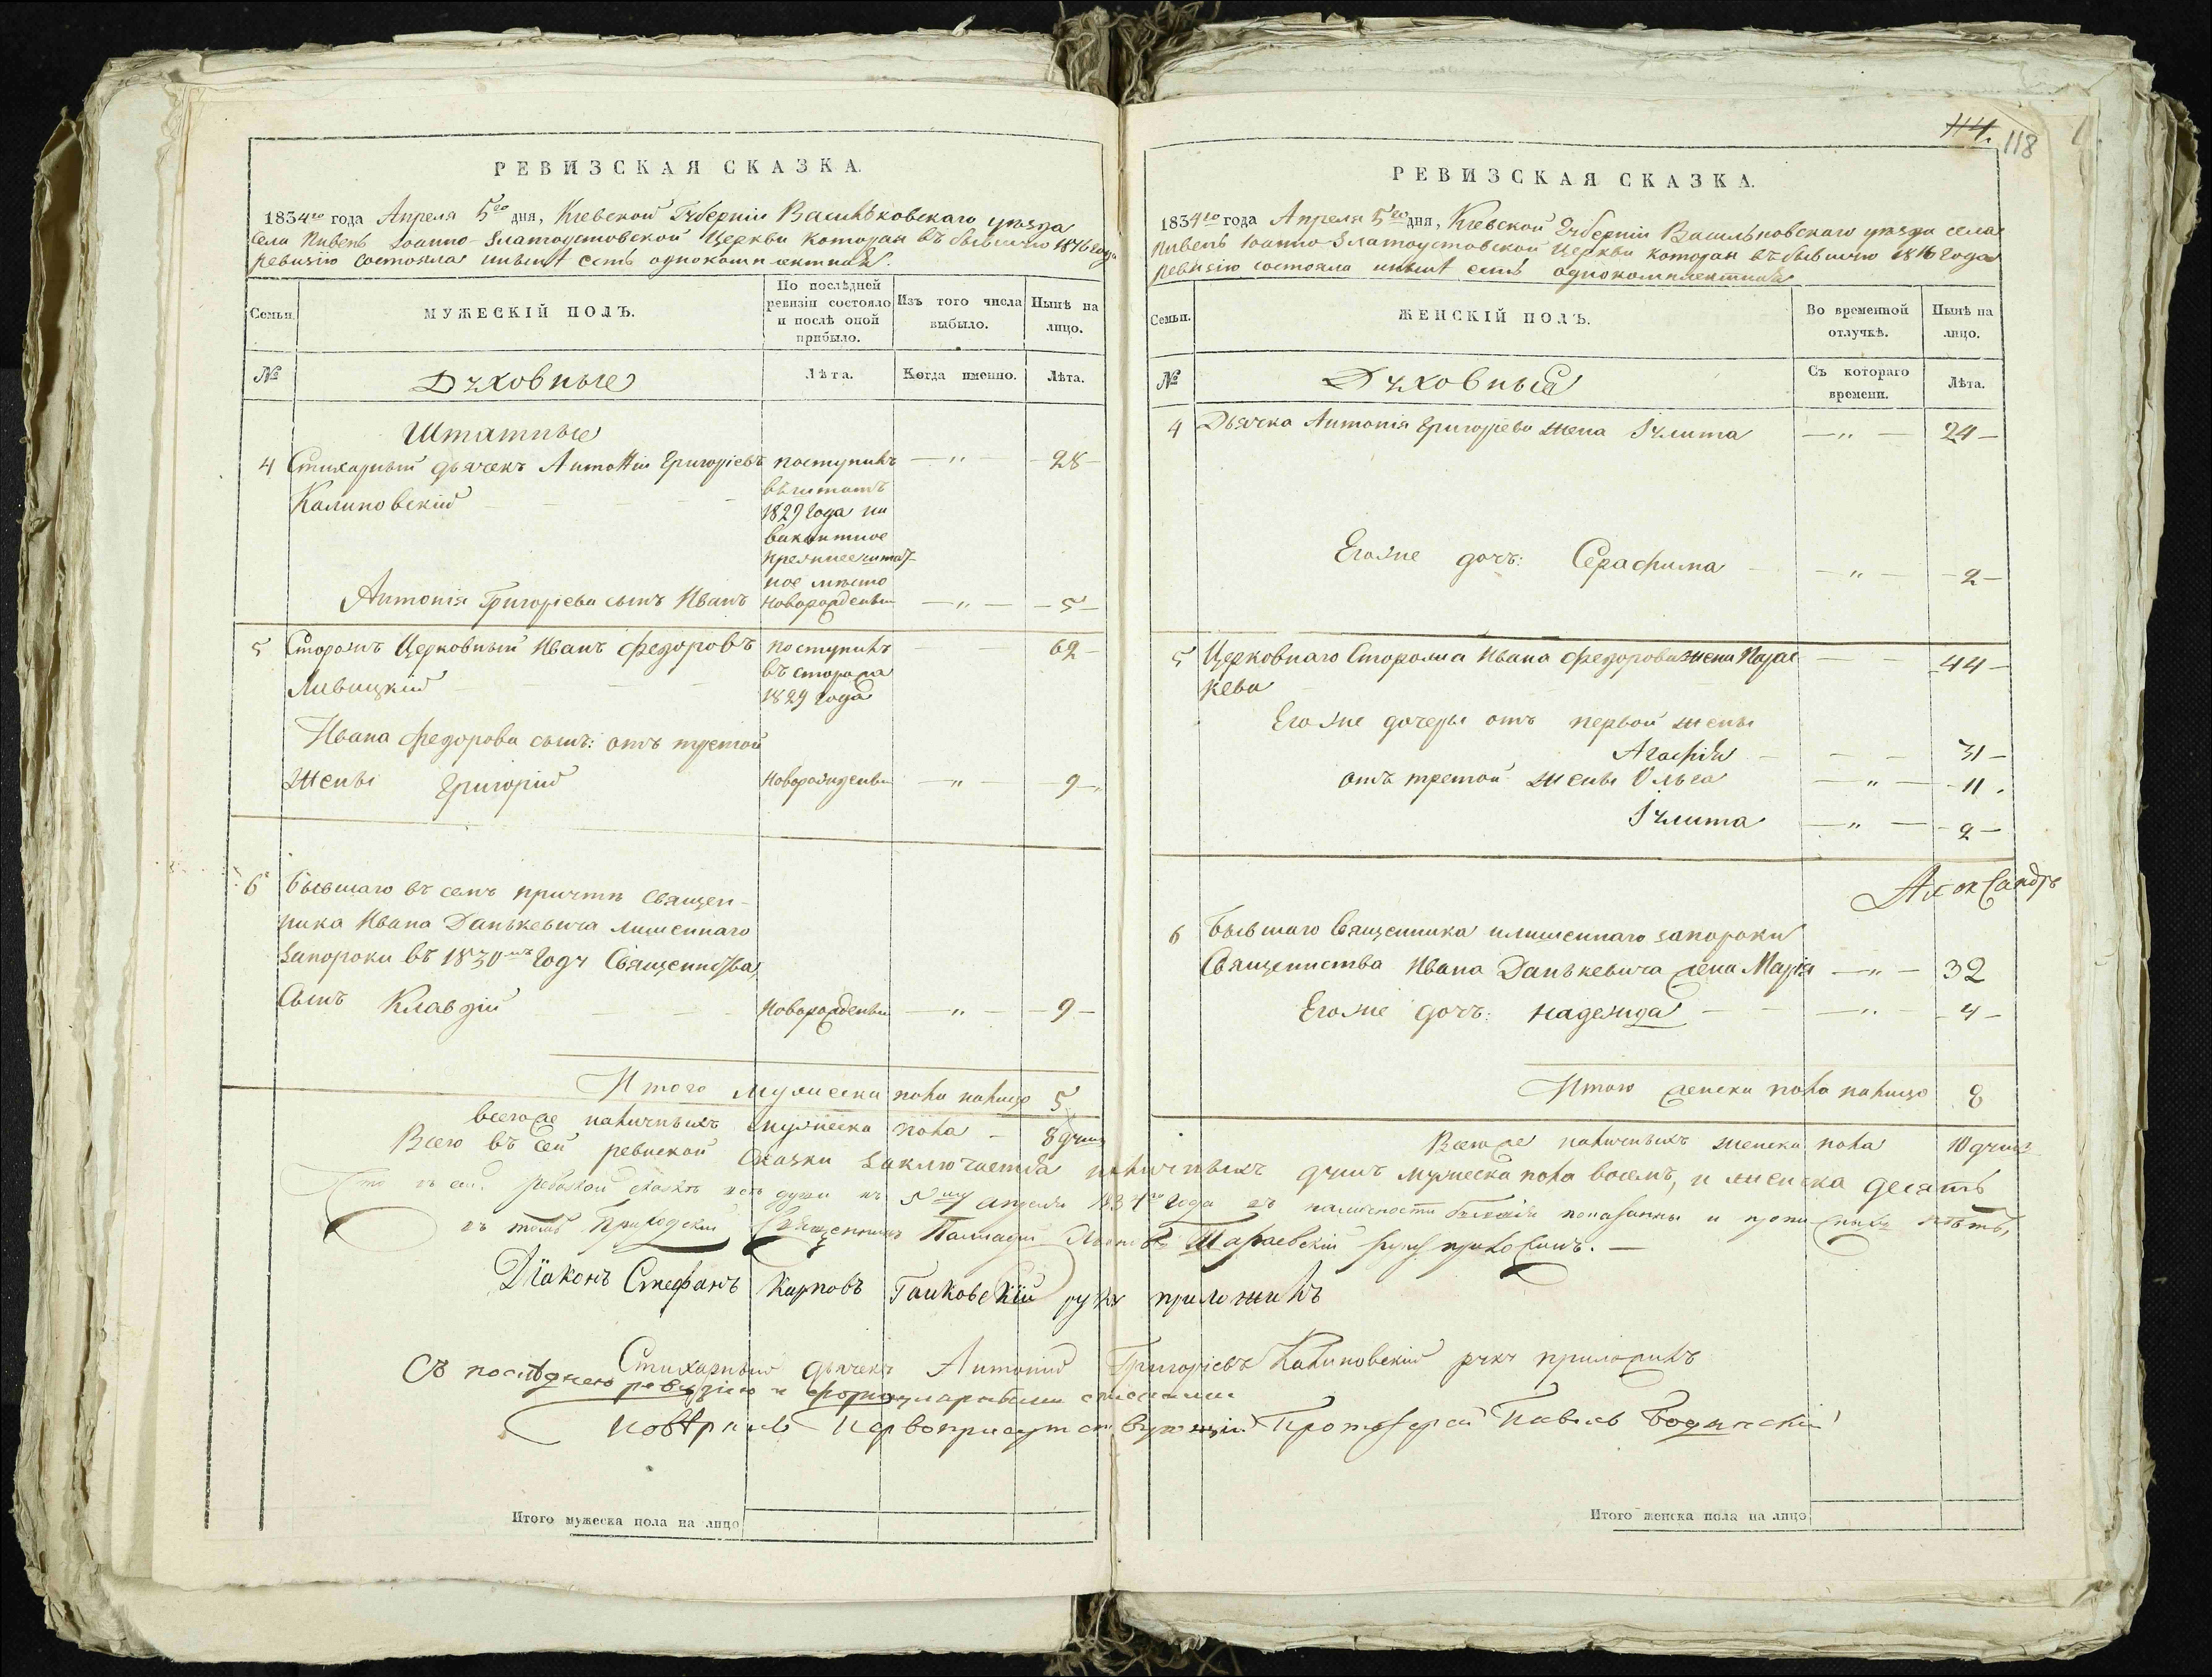 РЕВИЗСКАЯ СКАЗКА.
1834го года Апреля 5го дня, Кіевской Губерніи Васильковскаго уѣзда
села Пивень Іоанно-Златоустовской Церкви которая въ бывшую 1816 года
ревизію состояла иныит есть однокомплектная.
Семьи.
МУЖЕСКІЙ ПОЛЪ.
По послѣдней
ревизіи состояло
и послѣ оной
прибыло.
Изъ того числа
выбыло.
Нынѣ на
лицо.
№
Духовные
Лѣта.
Когда именно.
Лѣта.
Штатные
4 Стихарный дьячекъ Антоній Григорієвъ поступилъ — „ — 28 —
Калиновскій въ штатъ
1829 года на
вакантное
прежнее штат-
ное мѣсто
Антонія Григорієва сынъ Иванъ новорожденны — „ — — 5 —
5 Сторожъ Церковный Иванъ Федоровъ поступилъ — — 62 —
Ливицкій въ сторожа
1829 года
Ивана Федорова сынъ: отъ третой
жены Григорій Новорожденны — „ — — 9 —
6 Бывшаго въ семъ причтѣ священ-
ника Ивана Данькевича лишеннаго
запороки въ 1830мъ году Священнства,
Сынъ Клавдій Новорожденны — „ — — 9 —
Итого мужеска пола налицо 5
Всегоже наличныхъ мужеска пола — 8 душъ
114. 118
РЕВИЗСКАЯ СКАЗКА.
1834го года Апреля 5го дня, Кіевской Губерніи Васильковскаго уѣзда села
Пивень Іоанно-Златоустовской Церкви которая въ бывшую 1816 года
ревизію состояла иныит есть однокомплектная
Семьи.
ЖЕНСКІЙ ПОЛЪ.
Во временной
отлучкѣ.
Нынѣ на
лицо.
№
Духовныя
Съ котораго
времени.
Лѣта.
4 Дьячка Антонія Григорієва жена Іулита — „ — 24 —
Егоже дочъ: Серафима — „ — — 2 —
5 Церковнаго Сторожа Ивана Федорова жена Парас — — 44 —
кева
Егоже дочеры отъ первой жены
Агафія — — 31 —
отъ третой жены Ольга — „ — — 11 .
Іулита — „ — — 2 —
Александръ
6 Бывшаго Священника илишеннаго запороки
Священства Ивана Данькевича жена Марія — „ — 32
Егоже дочъ: Надежда — „ — — 4 —
Итого женска пола налицо 8
Всегоже наличныхъ женска пола 10 душъ
Всего въ сей ревиской сказки заключаетса наличныхъ душъ мужеска пола восемь, и женска десять
Что въ сей ревизкой сказкѣ всѣ души къ 5му апреля 1834го года въ наличности показанны и прописныхъ нѣтъ,
въ томъ Приходскій Священникъ руку приложилъ. —
Діаконъ Стефанъ Карповъ Ганковскій руку приложилъ
Стихарный дьячекъ Антоній Григорієвъ Калиновскій руку приложилъ
Съ послѣднею ревизіею и формулярными списками
повѣрилъ Первоприсутствующій Протоіерей Павелъ Бодянскій
Итого мужеска пола на лицо
Итого женска пола на лицо